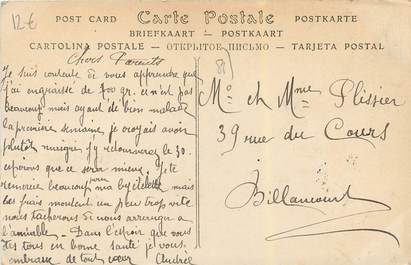 12€
POST CARD Carte Postale POSTKARTE
BRIEFKAART - POSTKAART
CARTOLINA POSTALE - ОТКРЫТОЕ ПИСЬМО - TARJETA POSTAL
Chers Parents
Je suis contente de vous apprendre que
j'ai engraissé de 300 gr. ce n'est pas
beaucoup mais ayant été bien malade
la première semaine, je croyais avoir
plutôt maigri. J'y retournerai le 30.
espérons que ce sera mieux. Je te
remercie beaucoup pour ma bicyclette mais
les frais montent un peu trop vite
nous tacherons de nous arranger à
l'amiable - Dans l'espoir que vous
êtes tous en bonne santé je vous
embrasse de tout cœur Andrée
Mr et Mme Plissier
39 rue du Cours
Billancourt